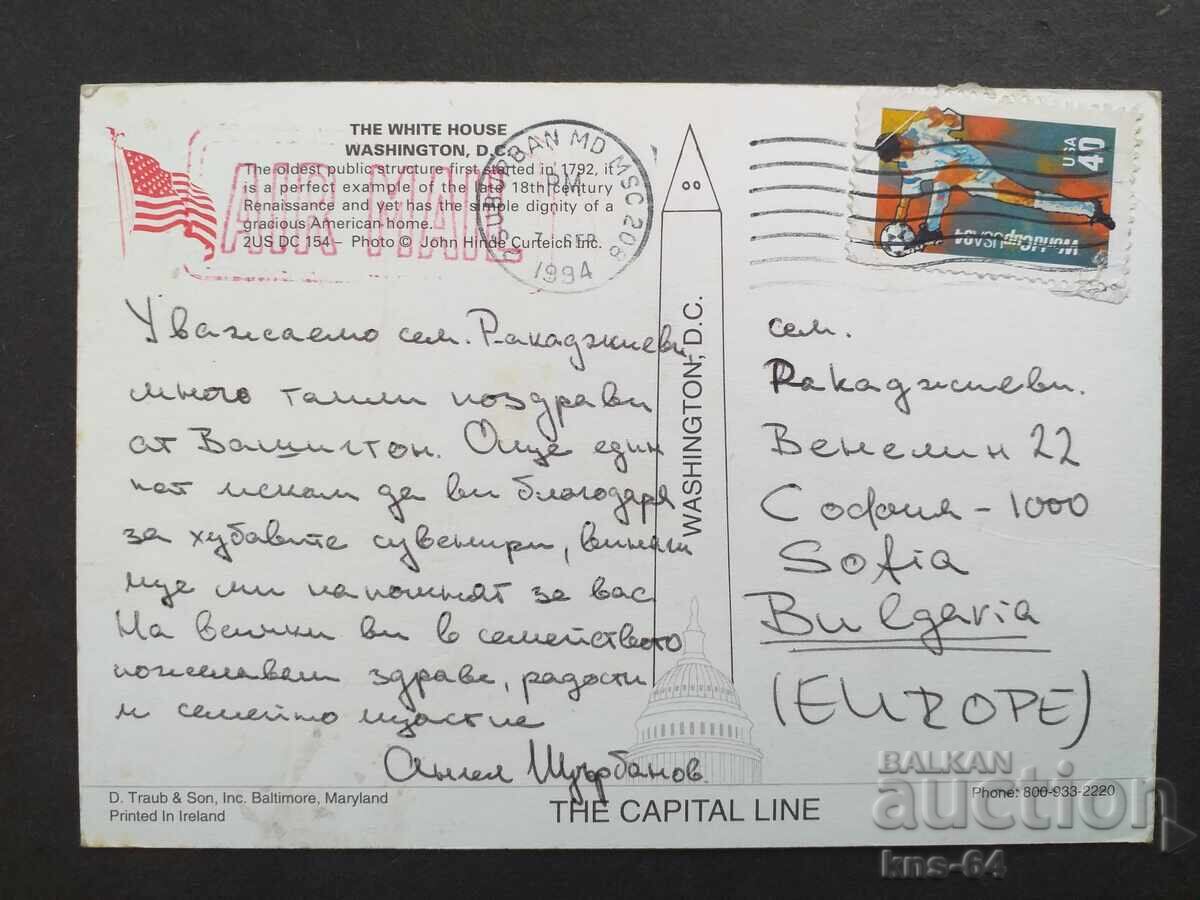 THE WHITE HOUSE
WASHINGTON, D.C.
The oldest public structure first started in 1792, it
is a perfect example of the late 18th century
Renaissance and yet has the simple dignity of a
gracious American home.
2US DC 154 – Photo © John Hinde Curteich Inc.
AIR MAIL
SUBURBAN MD MSC 208
PM
7 SEP
1994
USA
40
WorldCupUSA94
Уважаемо сем. Ракаджиеви,
много топли поздрави
от Вашингтон. Още един
път искам да ви благодаря
за хубавите сувенири, винаги
ще ми напомнят за вас
На всички ви в семейството
пожелавам здраве, радости
и семейно щастие
Ангел Щърбанов
WASHINGTON, D.C.
сем.
Ракаджиеви.
Венелин 22
София - 1000
Sofia
Bulgaria
(EUROPE)
D. Traub & Son, Inc. Baltimore, Maryland
Printed In Ireland
THE CAPITAL LINE
Phone: 800-933-2220
BALKAN
auction
kns-64